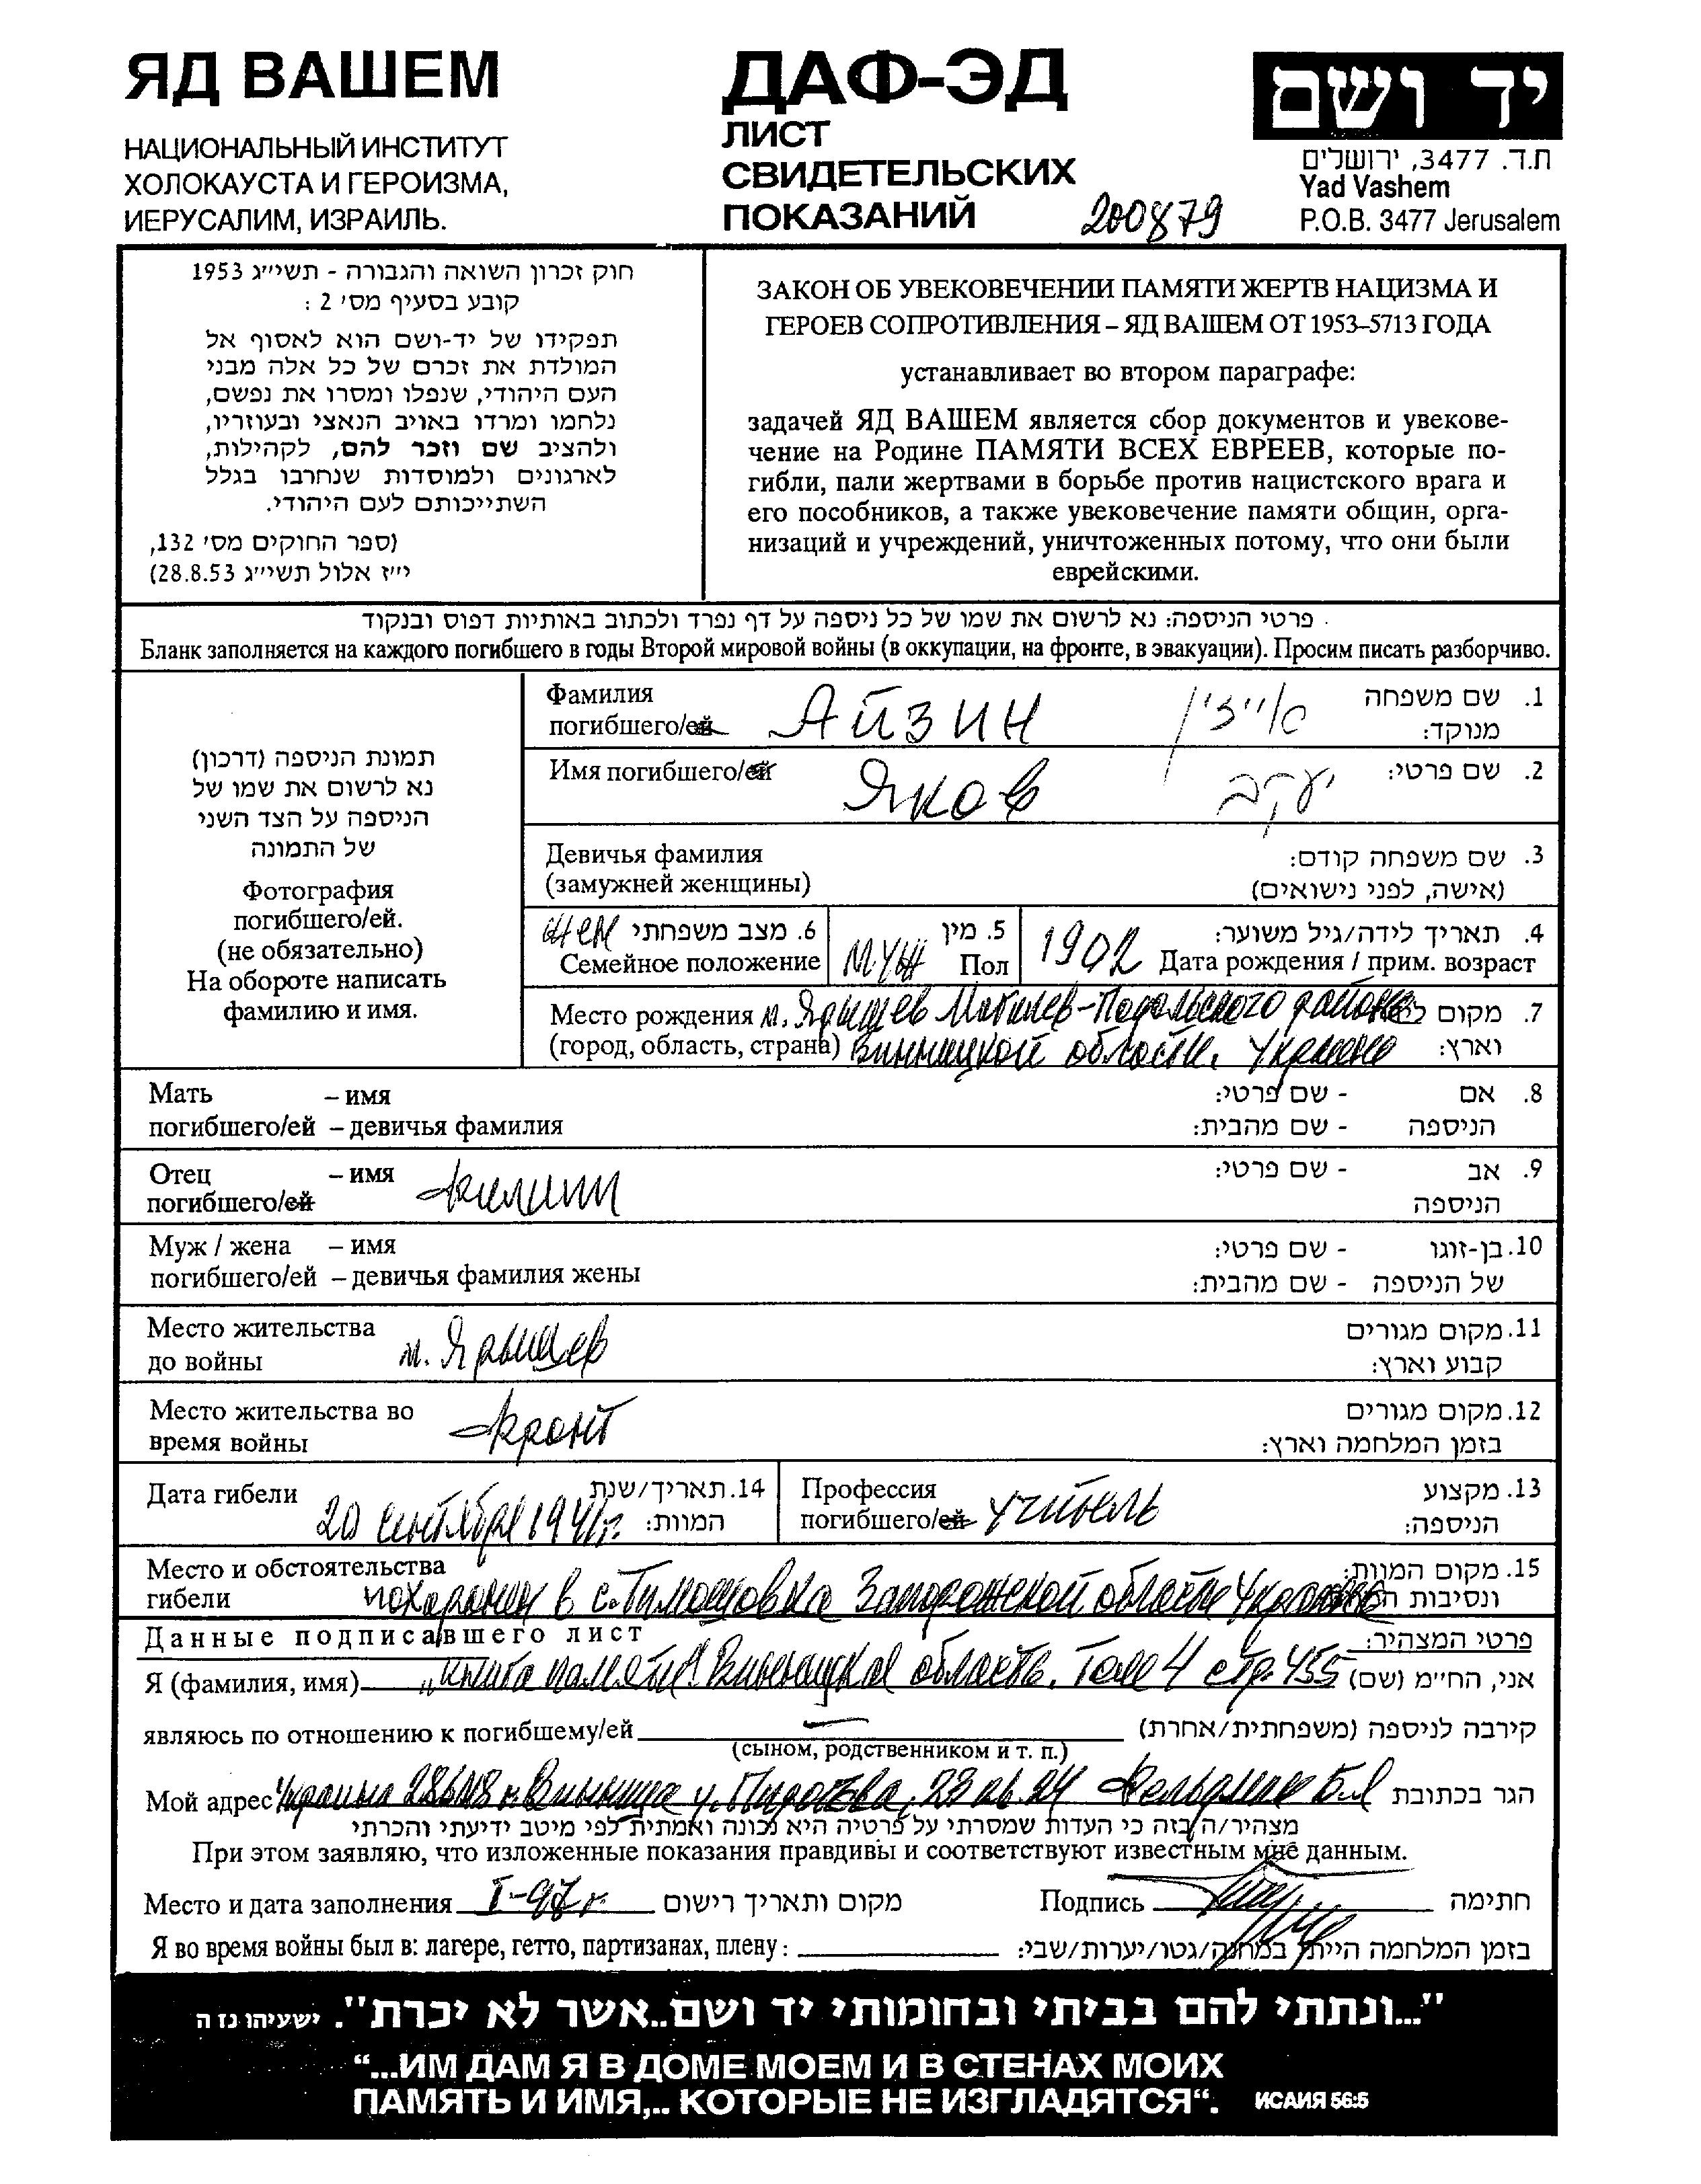 ЯД ВАШЕМ
НАЦИОНАЛЬНЫЙ ИНСТИТУТ
ХОЛОКАУСТА И ГЕРОИЗМА,
ИЕРУСАЛИМ, ИЗРАИЛЬ.
ДАФ-ЭД
ЛИСТ
СВИДЕТЕЛЬСКИХ
ПОКАЗАНИЙ
200879
יד ושם
ת.ד. 3477, ירושלים
Yad Vashem
P.O.B. 3477 Jerusalem
חוק זכרון השואה והגבורה - תשי״ג 1953
קובע בסעיף מס׳ 2 :
תפקידו של יד-ושם הוא לאסוף אל
המולדת את זכרם של כל אלה מבני
העם היהודי, שנפלו ומסרו את נפשם,
נלחמו ומרדו באויב הנאצי ובעוזריו,
ולהציב שם וזכר להם, לקהילות,
לארגונים ולמוסדות שנחרבו בגלל
השתייכותם לעם היהודי.
(ספר החוקים מס׳ 132,
י״ז אלול תשי״ג 28.8.53)
ЗАКОН ОБ УВЕКОВЕЧЕНИИ ПАМЯТИ ЖЕРТВ НАЦИЗМА И
ГЕРОЕВ СОПРОТИВЛЕНИЯ – ЯД ВАШЕМ ОТ 1953–5713 ГОДА
устанавливает во втором параграфе:
задачей ЯД ВАШЕМ является сбор документов и увекове-
чение на Родине ПАМЯТИ ВСЕХ ЕВРЕЕВ, которые по-
гибли, пали жертвами в борьбе против нацистского врага и
его пособников, а также увековечение памяти общин, орга-
низаций и учреждений, уничтоженных потому, что они были
еврейскими.
פרטי הניספה: נא לרשום את שמו של כל ניספה על דף נפרד ולכתוב באותיות דפוס ובנקוד
Бланк заполняется на каждого погибшего в годы Второй мировой войны (в оккупации, на фронте, в эвакуации). Просим писать разборчиво.
תמונת הניספה (דרכון)
נא לרשום את שמו של
הניספה על הצד השני
של התמונה
Фотография
погибшего/ей.
(не обязательно)
На обороте написать
фамилию и имя.
Фамилия 1. שם משפחה
погибшего/ей Айзин אייזין מנוקד:
Имя погибшего/ей Яков יעקב 2. שם פרטי:
Девичья фамилия 3. שם משפחה קודם:
(замужней женщины) (אישה, לפני נישואים)
жен 6. מצב משפחתי 5. מין 4. תאריך לידה/גיל משוער:
Семейное положение муж Пол 1902 Дата рождения / прим. возраст
Место рождения м. Ярышев Могилев-Подольского района 7. מקום
(город, область, страна) Винницкой области, Украина וארץ:
Мать – имя 8. אם - שם פרטי:
погибшего/ей – девичья фамилия הניספה - שם מהבית:
Отец – имя Филипп 9. אב - שם פרטי:
погибшего/ей הניספה
Муж / жена – имя 10. בן-זוגו - שם פרטי:
погибшего/ей – девичья фамилия жены של הניספה - שם מהבית:
Место жительства 11. מקום מגורים
до войны м. Ярышев קבוע וארץ:
Место жительства во 12. מקום מגורים
время войны фронт בזמן המלחמה וארץ:
Дата гибели 14. תאריך/שנת Профессия 13. מקצוע
20 сентября 1941г. המוות: погибшего/ей учитель הניספה:
Место и обстоятельства 15. מקום המוות:
гибели похоронен в с. Тимошовка Запорожской области Украина ונסיבות
Данные подписавшего лист פרטי המצהיר:
Я (фамилия, имя) „Книга памяти" Винницкая область. Том 4 стр. 455 אני, הח״מ (שם)
являюсь по отношению к погибшему/ей — קירבה לניספה (משפחתית/אחרת)
(сыном, родственником и т. п.)
Мой адрес Украина г. Винница у. Пирогова, 23 кв. 24 הגר בכתובת
מצהיר/ה בזה כי העדות שמסרתי על פרטיה היא נכונה ואמתית לפי מיטב ידיעתי והכרתי
При этом заявляю, что изложенные показания правдивы и соответствуют известным мне данным.
Место и дата заполнения I-97 г. מקום ותאריך רישום Подпись חתימה
Я во время войны был в: лагере, гетто, партизанах, плену : בזמן המלחמה הייתי במחנה/גטו/יערות/שבי:
"...ונתתי להם בביתי ובחומותי יד ושם..אשר לא יכרת". ישעיהו נז ה
“...ИМ ДАМ Я В ДОМЕ МОЕМ И В СТЕНАХ МОИХ
ПАМЯТЬ И ИМЯ,.. КОТОРЫЕ НЕ ИЗГЛАДЯТСЯ“. ИСАИЯ 56:5